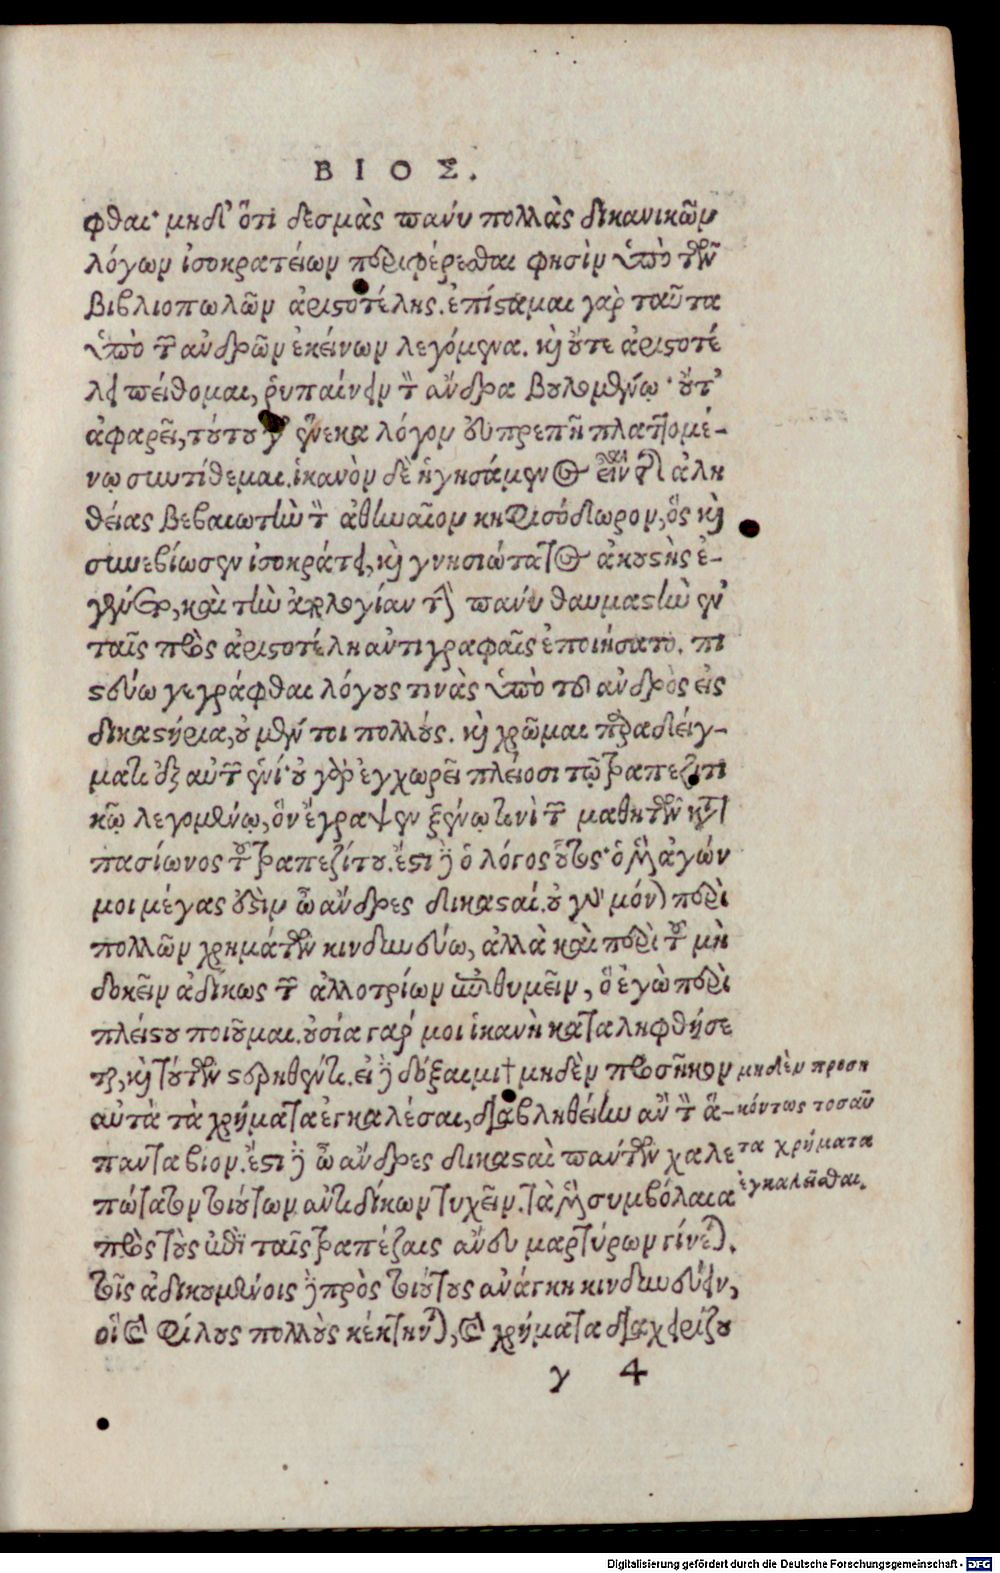 ΒΙΟΣ.
φθαι· μηδ' ὅτι δεσμὰς πάνυ πολλὰς δικανικῶν
λόγων ἰσοκρατείων περιφέρεσθαι φησὶν ὑπὸ τῶν
βιβλιοπωλῶν ἀριστοτέλης. ἐπίσταμαι γὰρ ταῦτα
ὑπὸ τῶν ἀνδρῶν ἐκείνων λεγόμενα. καὶ οὔτε ἀριστοτέ
λει πείθομαι, ῥυπαίνειν τὸν ἄνδρα βουλομένῳ· οὔτ'
ἀφαρεῖ, τούτου γ' ἕνεκα λόγον εὐπρεπῆ πλαττομέ-
νῳ συντίθεμαι. ἱκανὸν δὲ ἡγησάμενος εἶναι τῆς ἀλη
θείας βεβαιωτὴν τὸν ἀθηναῖον κηφισόδωρον, ὃς καὶ
συνεβίωσεν ἰσοκράτει, καὶ γνησιώτατος ἀκουστὴς ἐ-
γένετο, καὶ τὴν ἀπολογίαν τὴν πάνυ θαυμαστὴν ἐν
ταῖς πρὸς ἀριστοτέλη ἀντιγραφαῖς ἐποιήσατο. πι
στεύω γεγράφθαι λόγους τινὰς ὑπὸ τοῦ ἀνδρὸς εἰς
δικαστήρια, οὐ μέν τοι πολλούς. καὶ χρῶμαι παραδείγ-
ματι ἐξ αὐτῶν ἑνί· οὐ γὰρ ἐγχωρεῖ πλείοσι τῷ τραπεζιτι
κῷ λεγομένῳ, ὃν ἔγραψεν ξένῳ τινὶ τῶν μαθητῶν κατὰ
πασίωνος τοῦ τραπεζίτου. ἔστι δὲ ὁ λόγος οὗτος· ὁ μὲν ἀγών
μοι μέγας ἐστὶν ὦ ἄνδρες δικασταί. οὐ γὰρ μόνον περὶ
πολλῶν χρημάτων κινδυνεύω, ἀλλὰ καὶ περὶ τοῦ μὴ
δοκεῖν ἀδίκως τῶν ἀλλοτρίων ἐπιθυμεῖν, ὃ ἐγὼ περὶ
πλείστου ποιοῦμαι. οὐσία γάρ μοι ἱκανὴ καταληφθήσε
ται, καὶ τούτων στερηθέντι. εἰ δὲ δόξαιμι† μηδὲν προσῆκον
αὐτὰ τὰ χρήματα ἐγκαλέσαι, διαβληθείην ἂν τὸν ἅ-
παντα βίον. ἔστι δὲ ὦ ἄνδρες δικασταὶ πάντων χαλε
πώτατον τοιούτων ἀντιδίκων τυχεῖν. τὰ μὲν συμβόλαια
πρὸς τοὺς ἐπὶ ταῖς τραπέζαις ἄνευ μαρτύρων γίνεται.
τοῖς ἀδικουμένοις δὲ πρὸς τοιούτους ἀνάγκη κινδυνεύειν,
οἳ καὶ φίλους πολλοὺς κέκτηνται, καὶ χρήματα διαχειρίζου
μηδὲν προση
κόντως τοσαῦ
τα χρήματα
ἐγκαλεῖσθαι.
γ 4
Digitalisierung gefördert durch die Deutsche Forschungsgemeinschaft - DFG